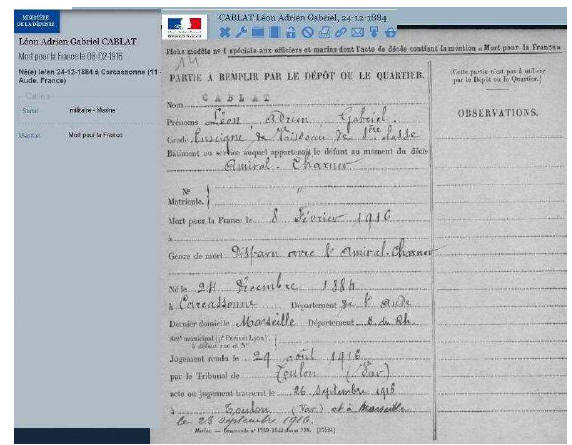 MINISTÈRE
DE LA DÉFENSE
Léon Adrien Gabriel CABLAT
Mort pour la France le 08-02-1916
Né(e) le/en 24-12-1884 à Carcassonne (11 -
Aude, France)
Carrière
Statut militaire - Marine
Mention Mort pour la France
CABLAT Léon Adrien Gabriel, 24-12-1884
Fiche modèle n° 1 spéciale aux officiers et marins dont l'acte de décès contient la mention « Mort pour la France »
14
PARTIE A REMPLIR PAR LE DÉPÔT OU LE QUARTIER.
Nom CABLAT
Prénoms Léon Adrien Gabriel
Grade Enseigne de Vaisseau de 1ère classe
Bâtiment ou service auquel appartenait le défunt au moment du décès
Amiral-Charner
N°
Matricule. "
Mort pour la France le 8 Février 1916
à
Genre de mort Disparu avec l'Amiral-Charner
Né le 24 Décembre 1884
à Carcassonne Département de l'Aude
Dernier domicile Marseille Département B. du Rh.
Arrt municipal (pr Paris et Lyon)
à défaut rue et N°
Jugement rendu le 29 août 1916
par le Tribunal de Toulon (Var)
acte ou jugement transcrit le 26 Septembre 1916
à Toulon (Var) et à Marseille
le 28 septembre 1916.
(Cette partie n'est pas à utiliser
par le Dépôt ou le Quartier.)
OBSERVATIONS.